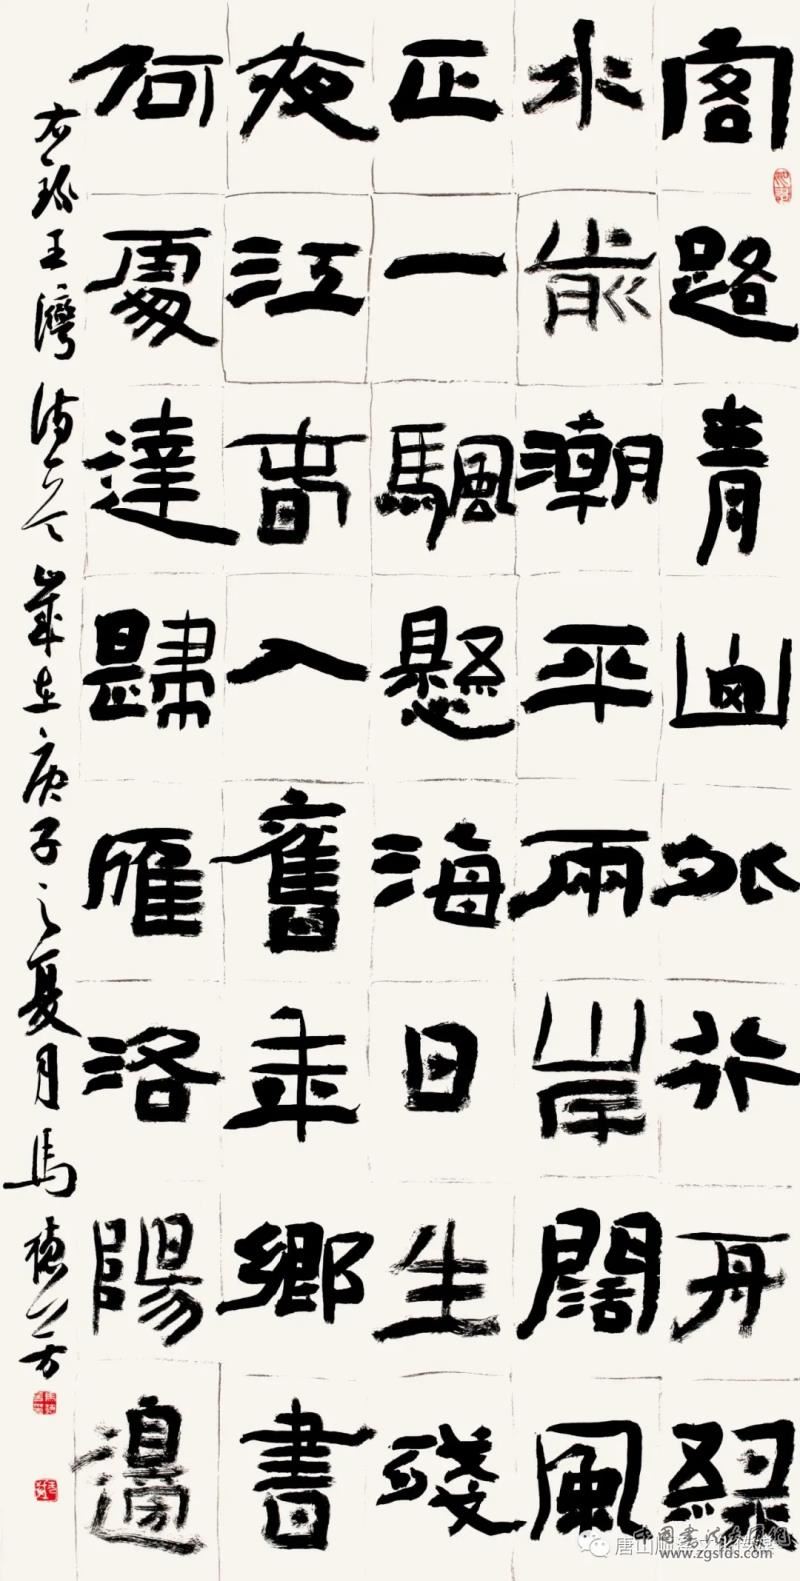 客路青山外行舟綠
水前潮平兩岸闊風
正一颿懸海日生殘
夜江春入舊年鄉書
何處達歸雁洛陽邊
右錄王灣詩一首歲在庚子之夏月馬芳
唐山
www.zgsfds.com